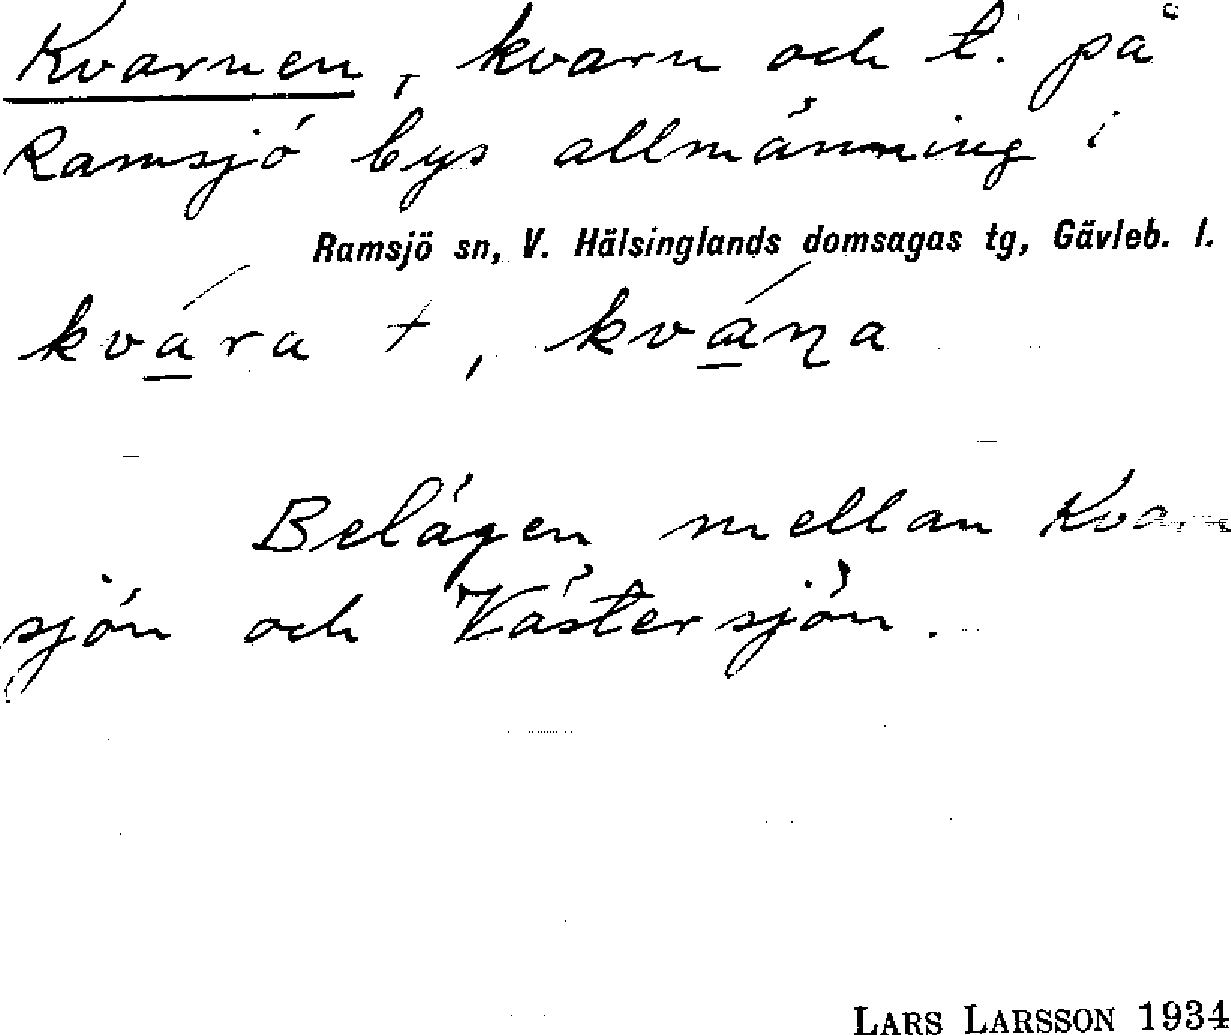 Kvarnen, kvarn och t. på
Ramsjö bys allmänning i
Ramsjö sn, V. Hälsinglands domsagas tg, Gävleb. l.
kvára †, kváṇa
Belägen mellan Kvarn
sjön och Västersjön.
LARS LARSSON 1934